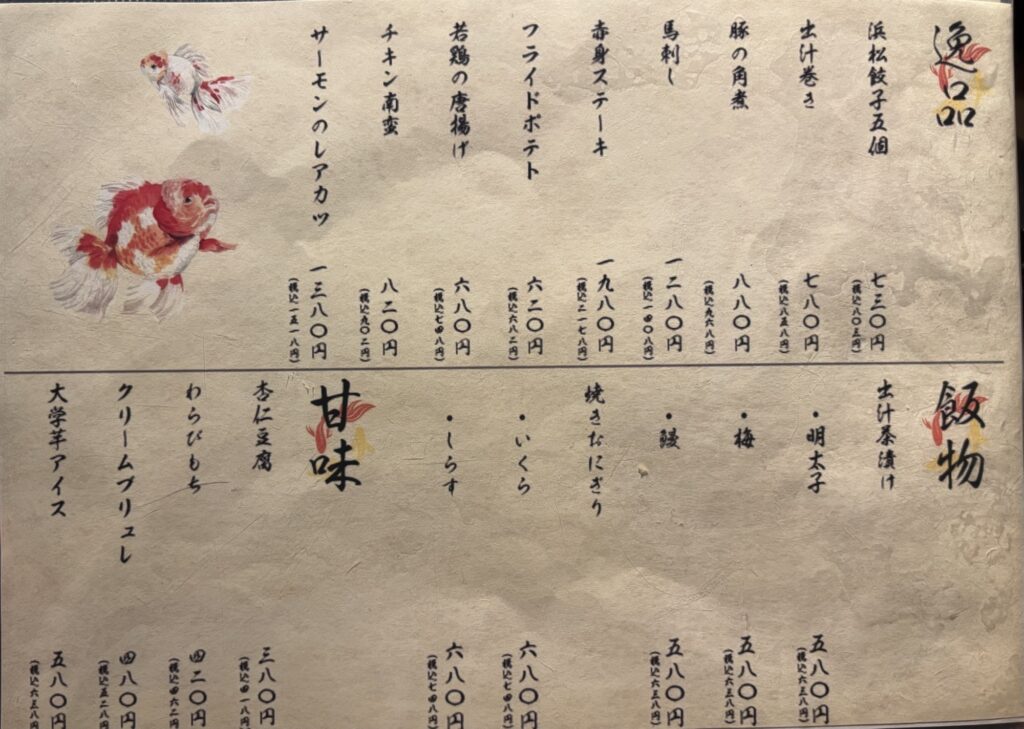 逸品
浜松餃子五個
七三〇円
(税込八〇三円)
出汁巻き
七八〇円
(税込八五八円)
豚の角煮
八八〇円
(税込九六八円)
馬刺し
一二八〇円
(税込一四〇八円)
赤身ステーキ
一九八〇円
(税込二一七八円)
フライドポテト
六二〇円
(税込六八二円)
若鶏の唐揚げ
六八〇円
(税込七四八円)
チキン南蛮
八二〇円
(税込九〇二円)
サーモンのレアカツ
一三八〇円
(税込一五一八円)
飯物
出汁茶漬け
・明太子
五八〇円
(税込六三八円)
・梅
五八〇円
(税込六三八円)
・鰻
五八〇円
(税込六三八円)
焼きおにぎり
・いくら
六八〇円
(税込七四八円)
・しらす
六八〇円
(税込七四八円)
甘味
杏仁豆腐
三八〇円
(税込四一八円)
わらびもち
四二〇円
(税込四六二円)
クリームブリュレ
四八〇円
(税込五二八円)
大学芋アイス
五八〇円
(税込六三八円)